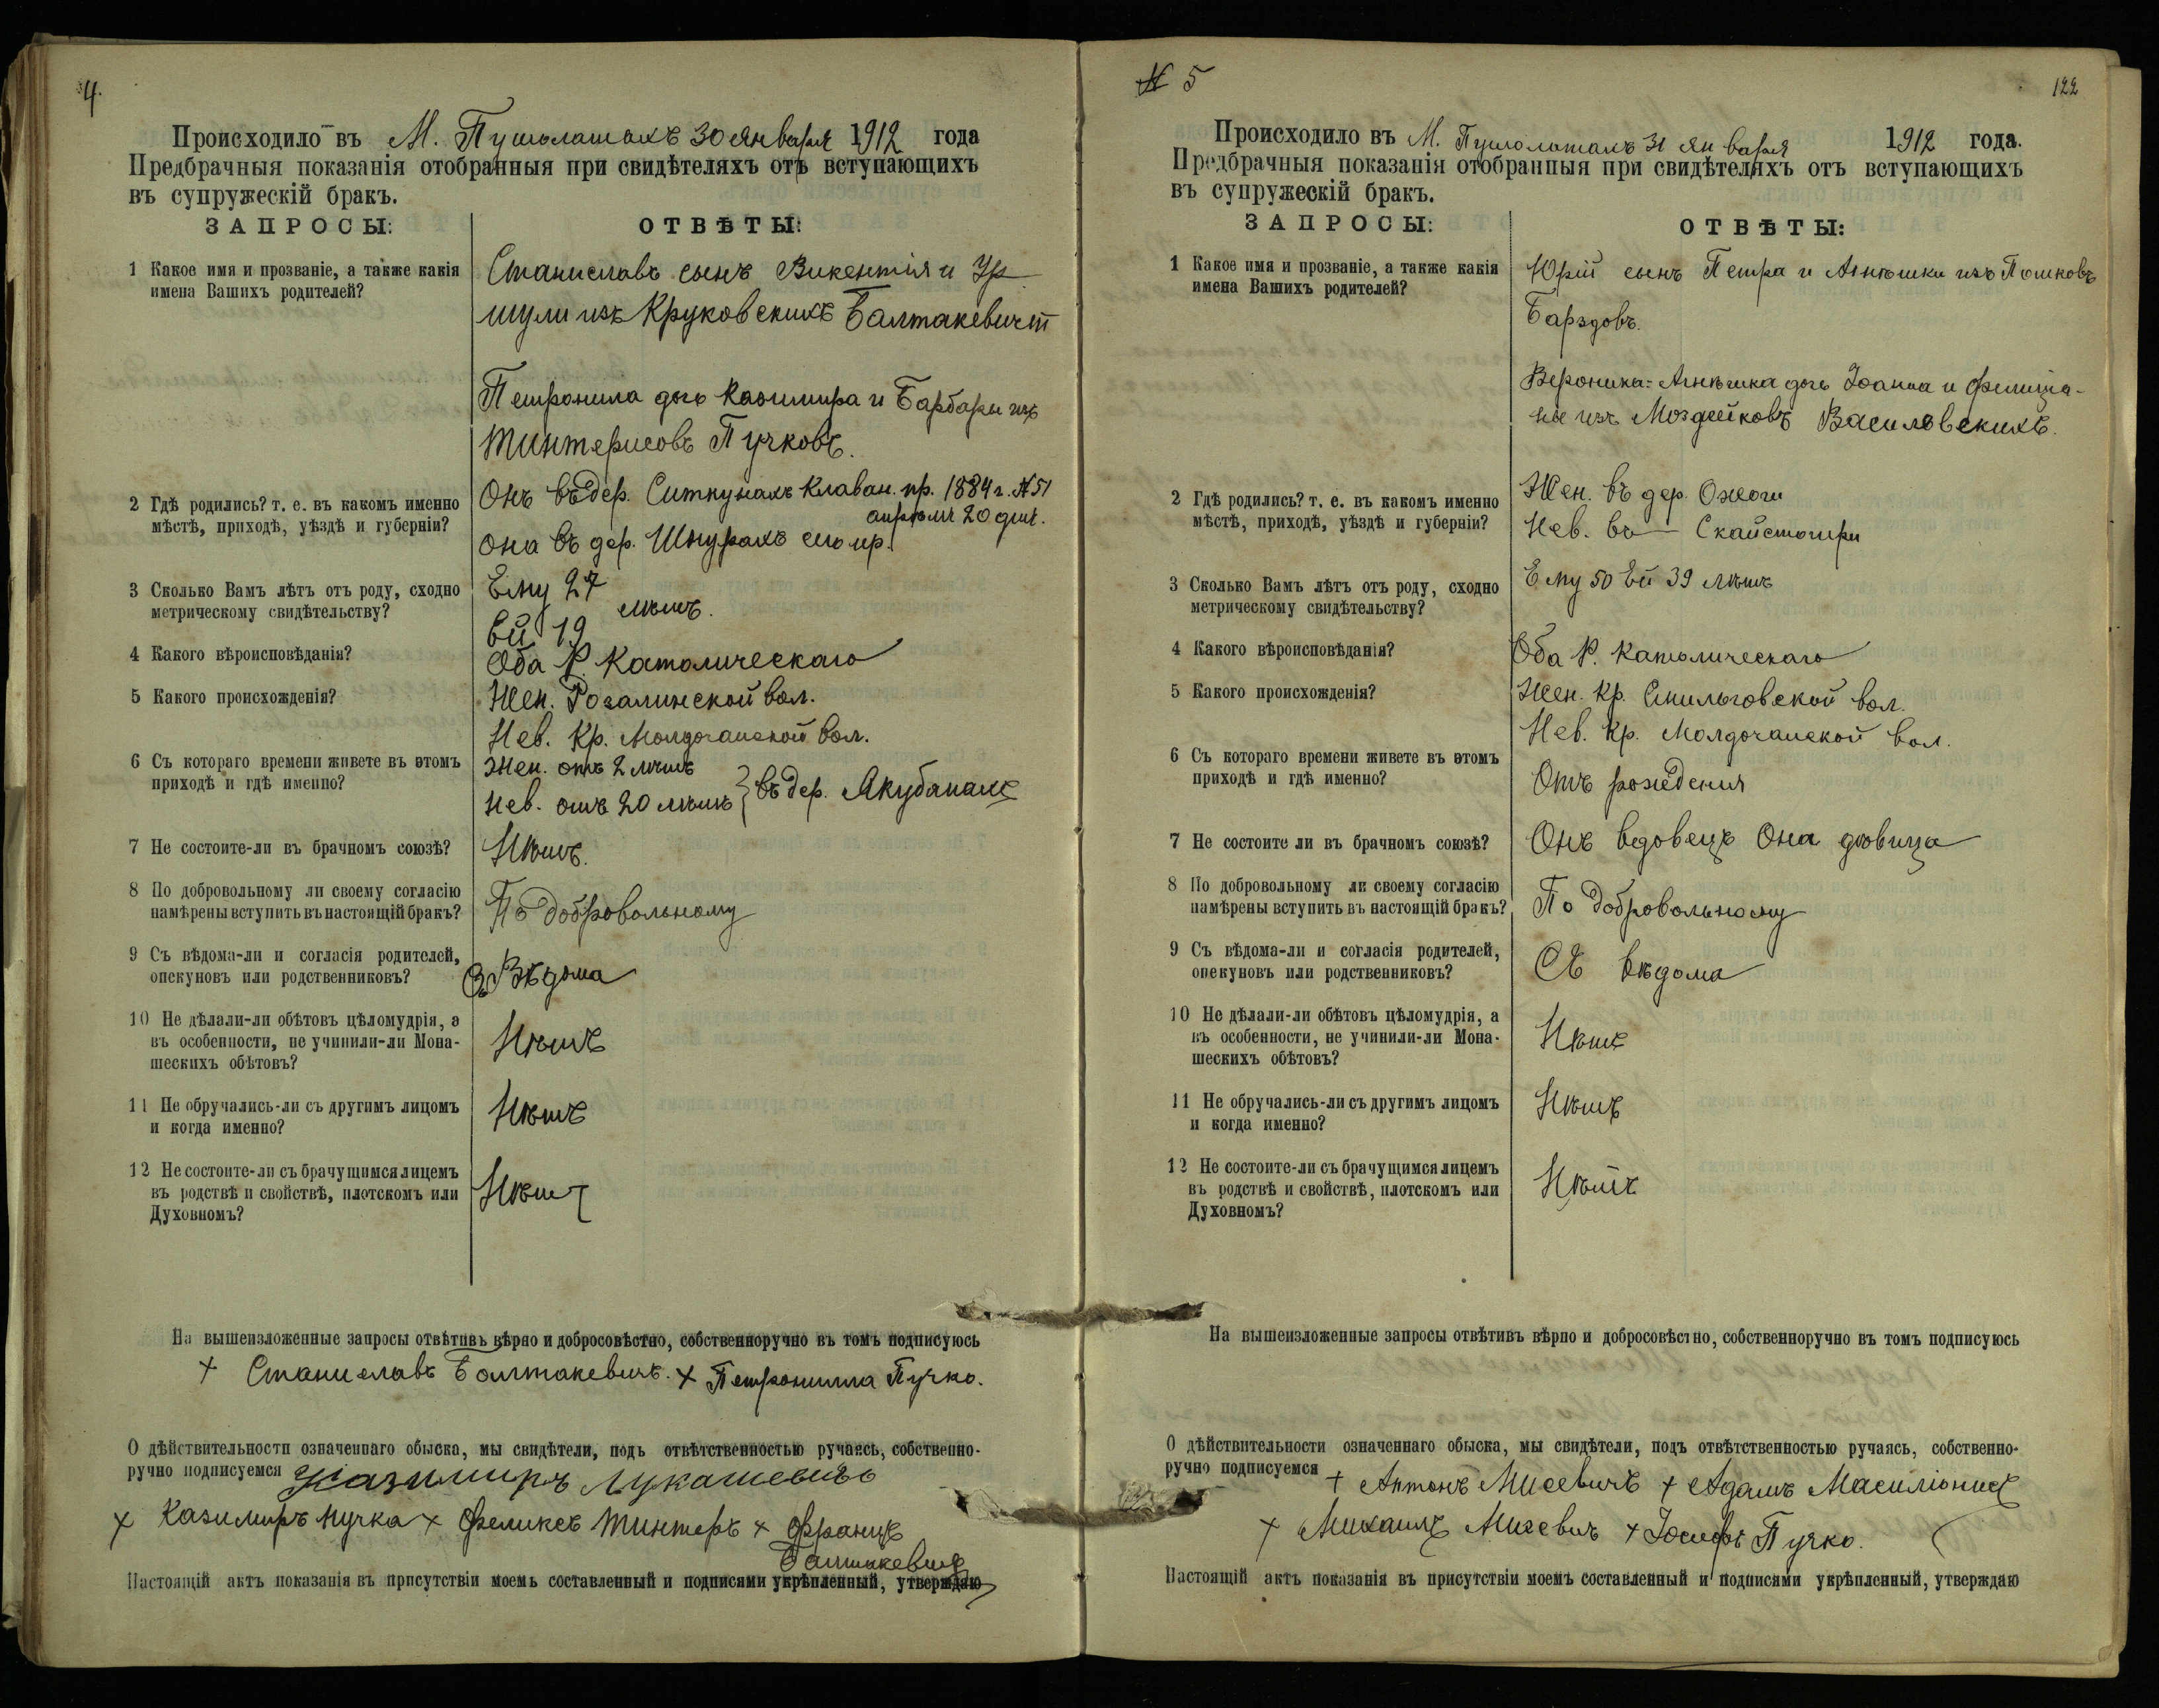 4.
Происходило въ М. Пушолатахъ 30 января 1912 года
Предбрачныя показанія отобранныя при свидѣтеляхъ отъ вступающихъ
въ супружескій бракъ.
ЗАПРОСЫ: ОТВѢТЫ:
1 Какое имя и прозваніе, а также какія
имена Вашихъ родителей?
Станиславъ сынъ Викентія и Ур
шули изъ Круковскихъ Балтакевичъ
Петронила дочь Казимира и Барбары изъ
Тинтерисовъ Пучковъ.
2 Гдѣ родились? т. е. въ какомъ именно
мѣстѣ, приходѣ, уѣздѣ и губерніи?
Онъ въ дер. Ситкунахъ Клаван. пр. 1884 г. №51
апрѣля 20 дня.
она въ дер. Шнурахъ сего пр.
3 Сколько Вамъ лѣтъ отъ роду, сходно
метрическому свидѣтельству?
Ему 27
лѣтъ.
Ей 19
4 Какого вѣроисповѣданія?
Оба Р. Католическаго
5 Какого происхожденія?
Жен. Розалинской вол.
Нев. Кр. Молдочанской вол.
6 Съ котораго времени живете въ этомъ
приходѣ и гдѣ именно?
Жен. отъ 2 лѣтъ
Нев. отъ 20 лѣтъ } въ дер. Якубанахъ
7 Не состоите-ли въ брачномъ союзѣ?
Нѣтъ.
8 По добровольному ли своему согласію
намѣрены вступить въ настоящій бракъ?
По добровольному
9 Съ вѣдома-ли и согласія родителей,
опекуновъ или родственниковъ?
Съ Вѣдома
10 Не дѣлали-ли обѣтовъ цѣломудрія, а
въ особенности, не учинили-ли Мона-
шескихъ обѣтовъ?
Нѣтъ
11 Не обручались-ли съ другимъ лицомъ
и когда именно?
Нѣтъ
12 Не состоите-ли съ брачущимся лицемъ
въ родствѣ и свойствѣ, плотскомъ или
Духовномъ?
Нѣтъ
На вышеизложенные запросы отвѣтивъ вѣрно и добросовѣстно, собственноручно въ томъ подписуюсь
+ Станиславъ Балтакевичъ. + Петронилла Пучко.
О дѣйствительности означеннаго обыска, мы свидѣтели, подъ отвѣтственностью ручаясь, собственно-
ручно подписуемся Казимиръ Лукашевичъ
+ Казимиръ Пучка + Феликсъ Тинтеръ + Францъ
Балтакевичъ
Настоящій актъ показанія въ присутствіи моемъ составленный и подписями укрѣпленный, утверждаю
№ 5
122
Происходило въ М. Пушолатахъ 31 января 1912 года.
Предбрачныя показанія отобранныя при свидѣтеляхъ отъ вступающихъ
въ супружескій бракъ.
ЗАПРОСЫ: ОТВѢТЫ:
1 Какое имя и прозваніе, а также какія
имена Вашихъ родителей?
Юрій сынъ Петра и Агнѣшки изъ Пошковъ
Барздовъ.
Вероника-Агнѣшка дочь Іоанна и Фелиціа-
ны изъ Моздейковъ Василевскихъ.
2 Гдѣ родились? т. е. въ какомъ именно
мѣстѣ, приходѣ, уѣздѣ и губерніи?
Жен. въ дер. Ожоги
Нев. въ — Скайстогири
3 Сколько Вамъ лѣтъ отъ роду, сходно
метрическому свидѣтельству?
Ему 50 Ей 39 лѣтъ
4 Какого вѣроисповѣданія?
Оба Р. Католическаго
5 Какого происхожденія?
Жен. Кр. Смильговской вол.
Нев. Кр. Молдочанской вол.
6 Съ котораго времени живете въ этомъ
приходѣ и гдѣ именно?
Отъ рожденія
7 Не состоите ли въ брачномъ союзѣ?
Онъ вдовецъ Она девица
8 По добровольному ли своему согласію
намѣрены вступить въ настоящій бракъ?
По добровольному
9 Съ вѣдома-ли и согласія родителей,
опекуновъ или родственниковъ?
Съ вѣдома
10 Не дѣлали-ли обѣтовъ цѣломудрія, а
въ особенности, не учинили-ли Мона-
шескихъ обѣтовъ?
Нѣтъ
11 Не обручались-ли съ другимъ лицомъ
и когда именно?
Нѣтъ
12 Не состоите-ли съ брачущимся лицемъ
въ родствѣ и свойствѣ, плотскомъ или
Духовномъ?
Нѣтъ
На вышеизложенные запросы отвѣтивъ вѣрно и добросовѣстно, собственноручно въ томъ подписуюсь
О дѣйствительности означеннаго обыска, мы свидѣтели, подъ отвѣтственностью ручаясь, собственно-
ручно подписуемся + Антонъ Мисевичъ + Адамъ Масиліонисъ
+ Михаилъ Мисевичъ + Іосифъ Пучко.
Настоящій актъ показанія въ присутствіи моемъ составленный и подписями укрѣпленный, утверждаю